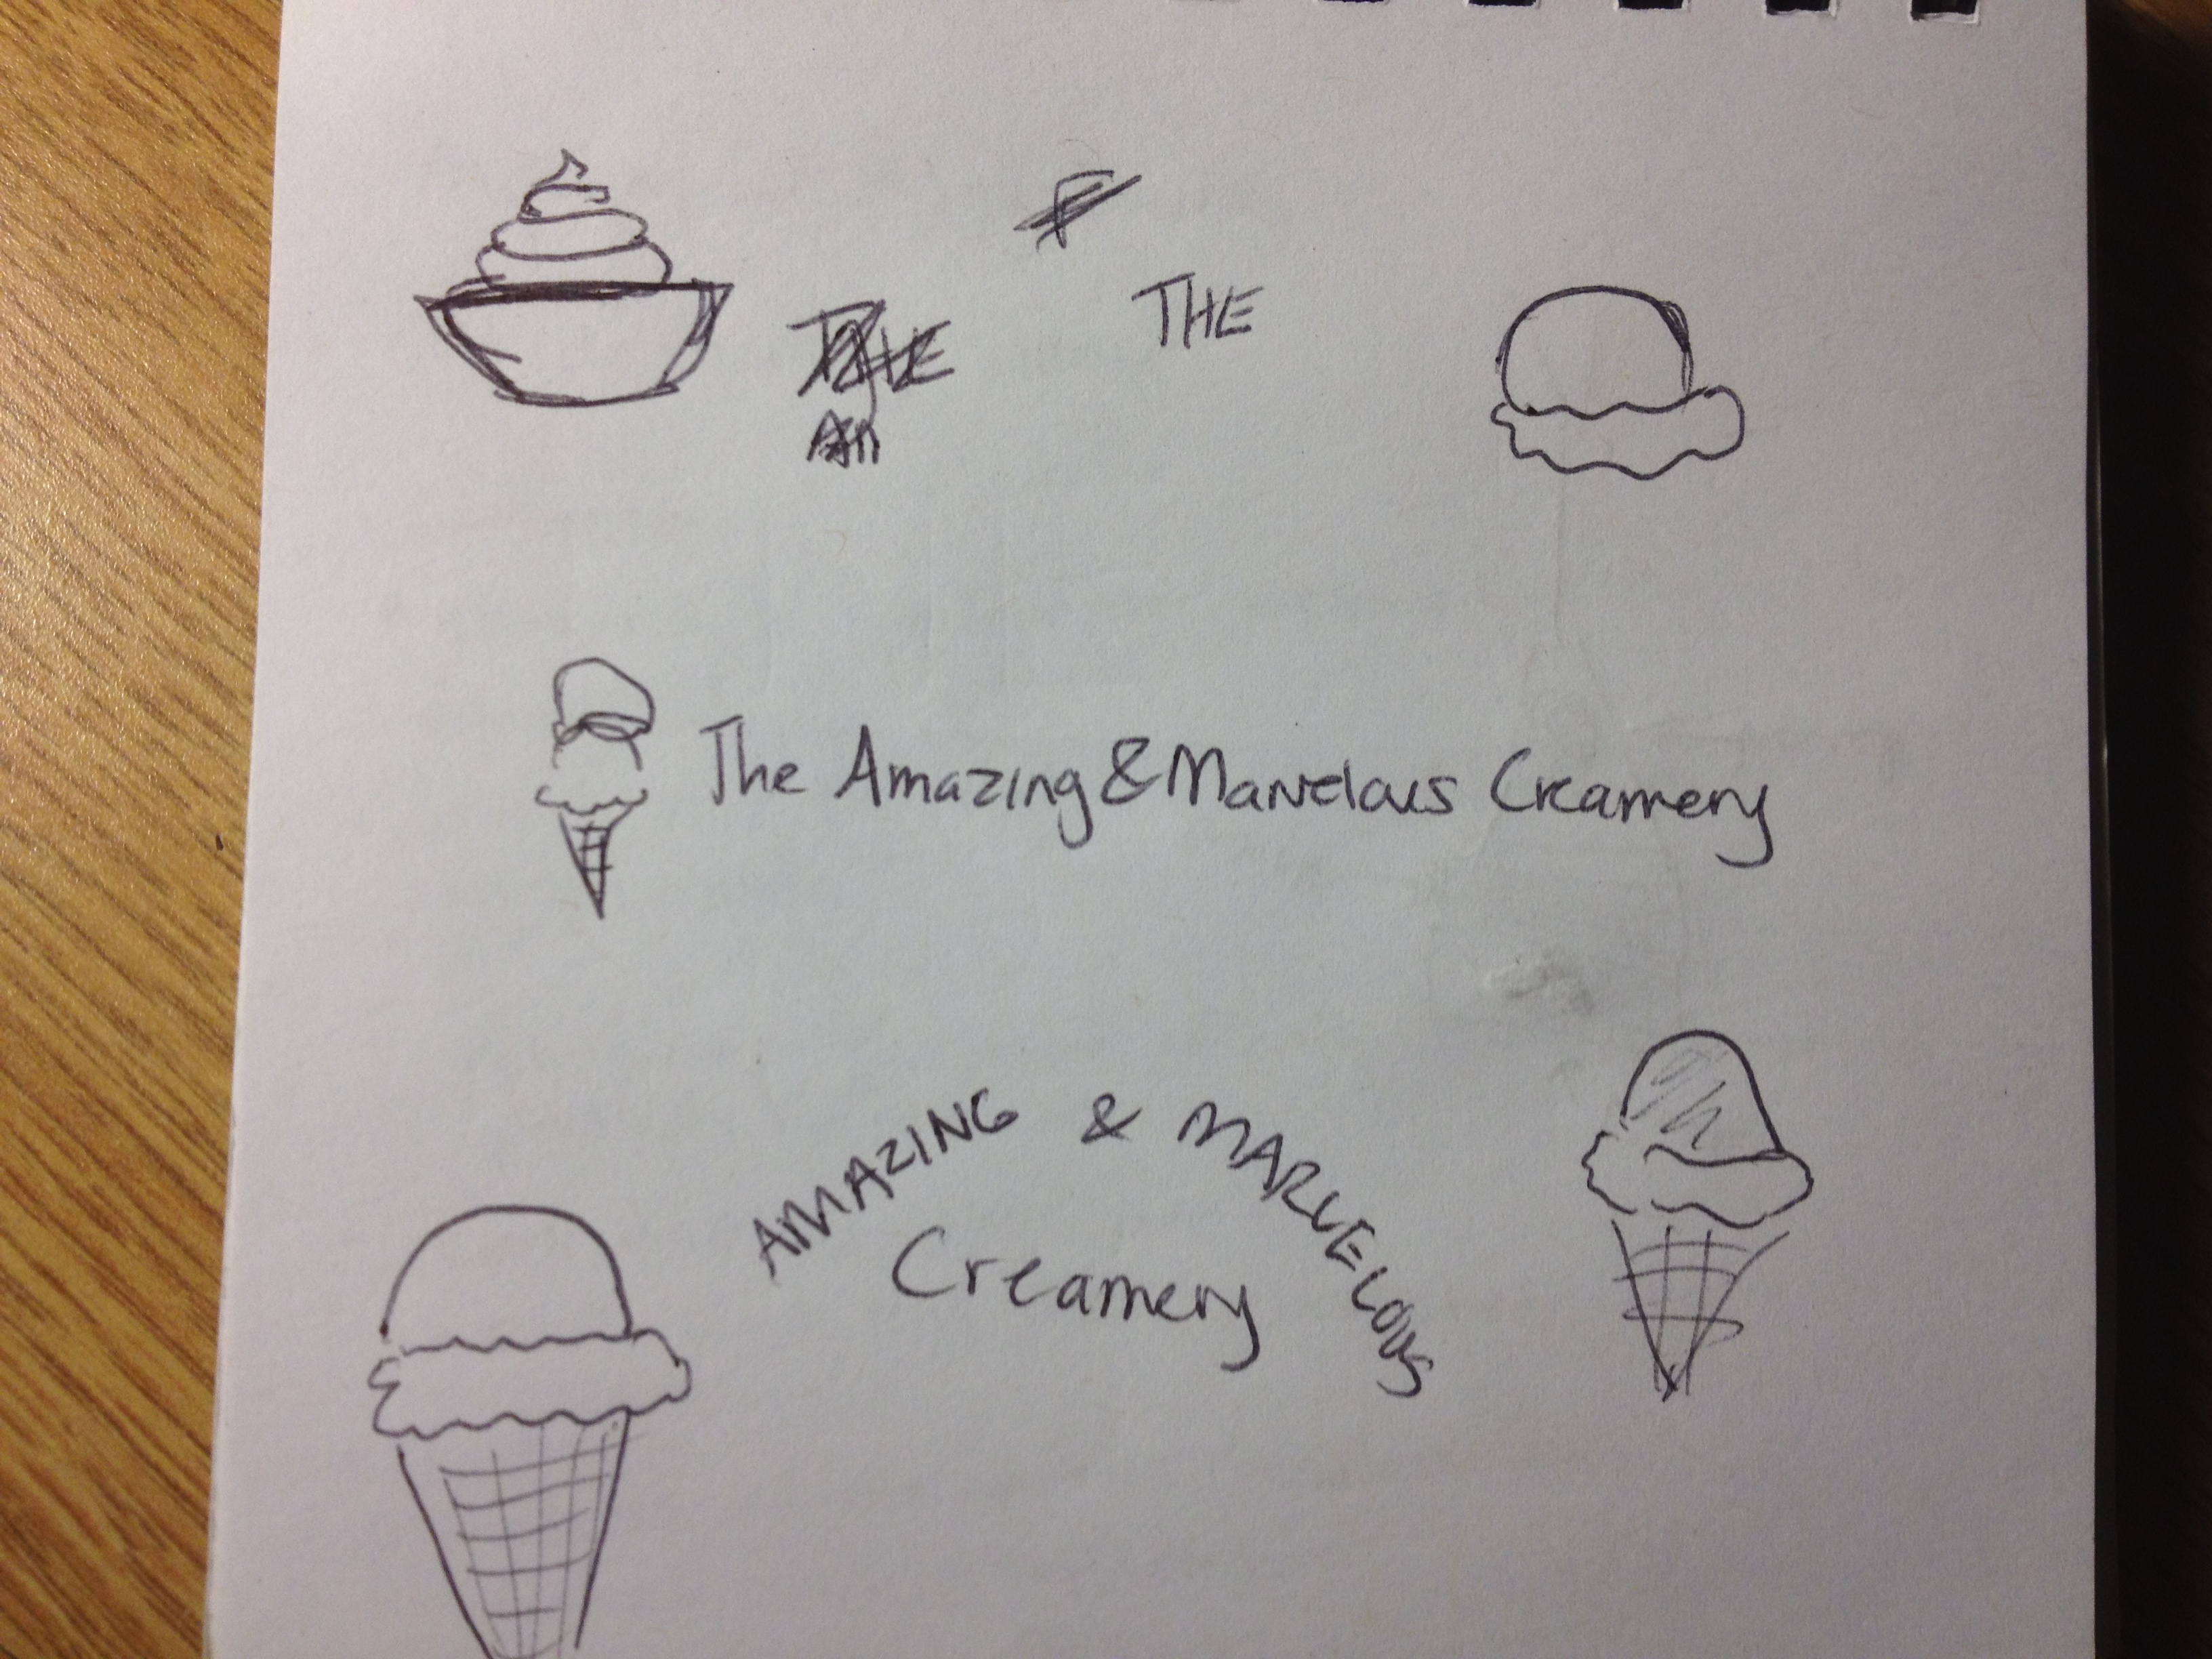 THE
THE
The Amazing & Marvelous Creamery
AMAZING & MARVELOUS
Creamery